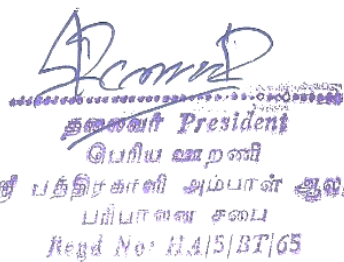 தலைவர் President
பெரிய ஊறணி
ஸ்ரீ பத்திரகாளி அம்பாள் ஆலய
பரிபாலன சபை
Regd No: HA/5/BT/65